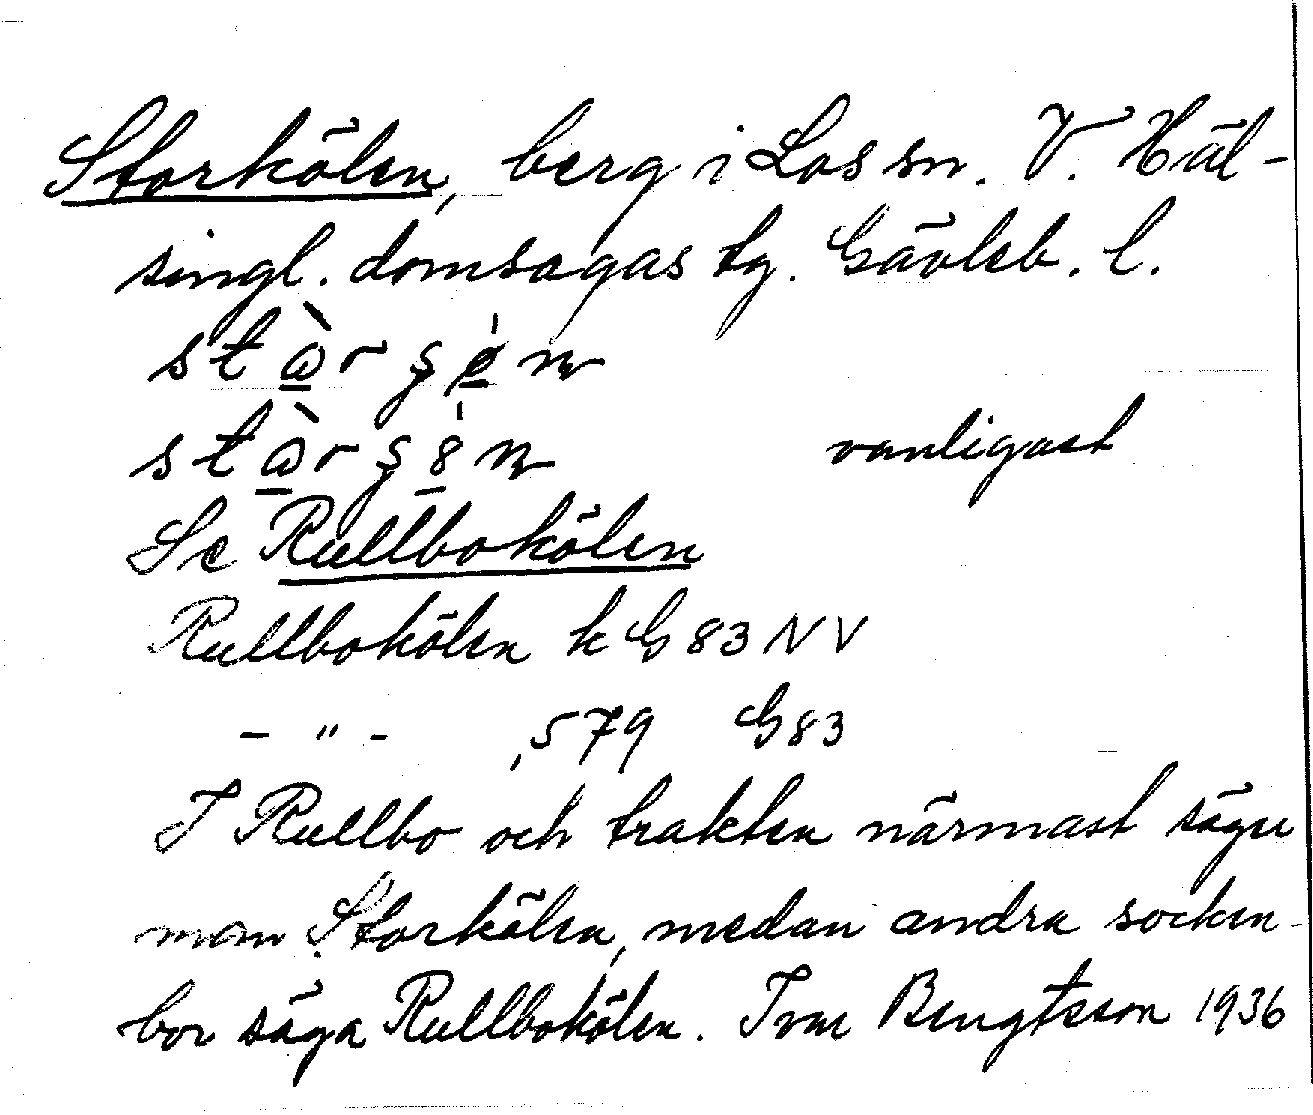 Storkölen, berg i Los sn. V. Häl-
singl. domsagas tg. Gävleb. l.
vanligast
Se Rullbokölen
Rullbokölen k G 83 NV
– " – , 579 G 83
I Rullbo och trakten närmast säger
man Storkölen, medan andra socken-
bor säga Rullbokölen. Ivar Bengtsson 1936